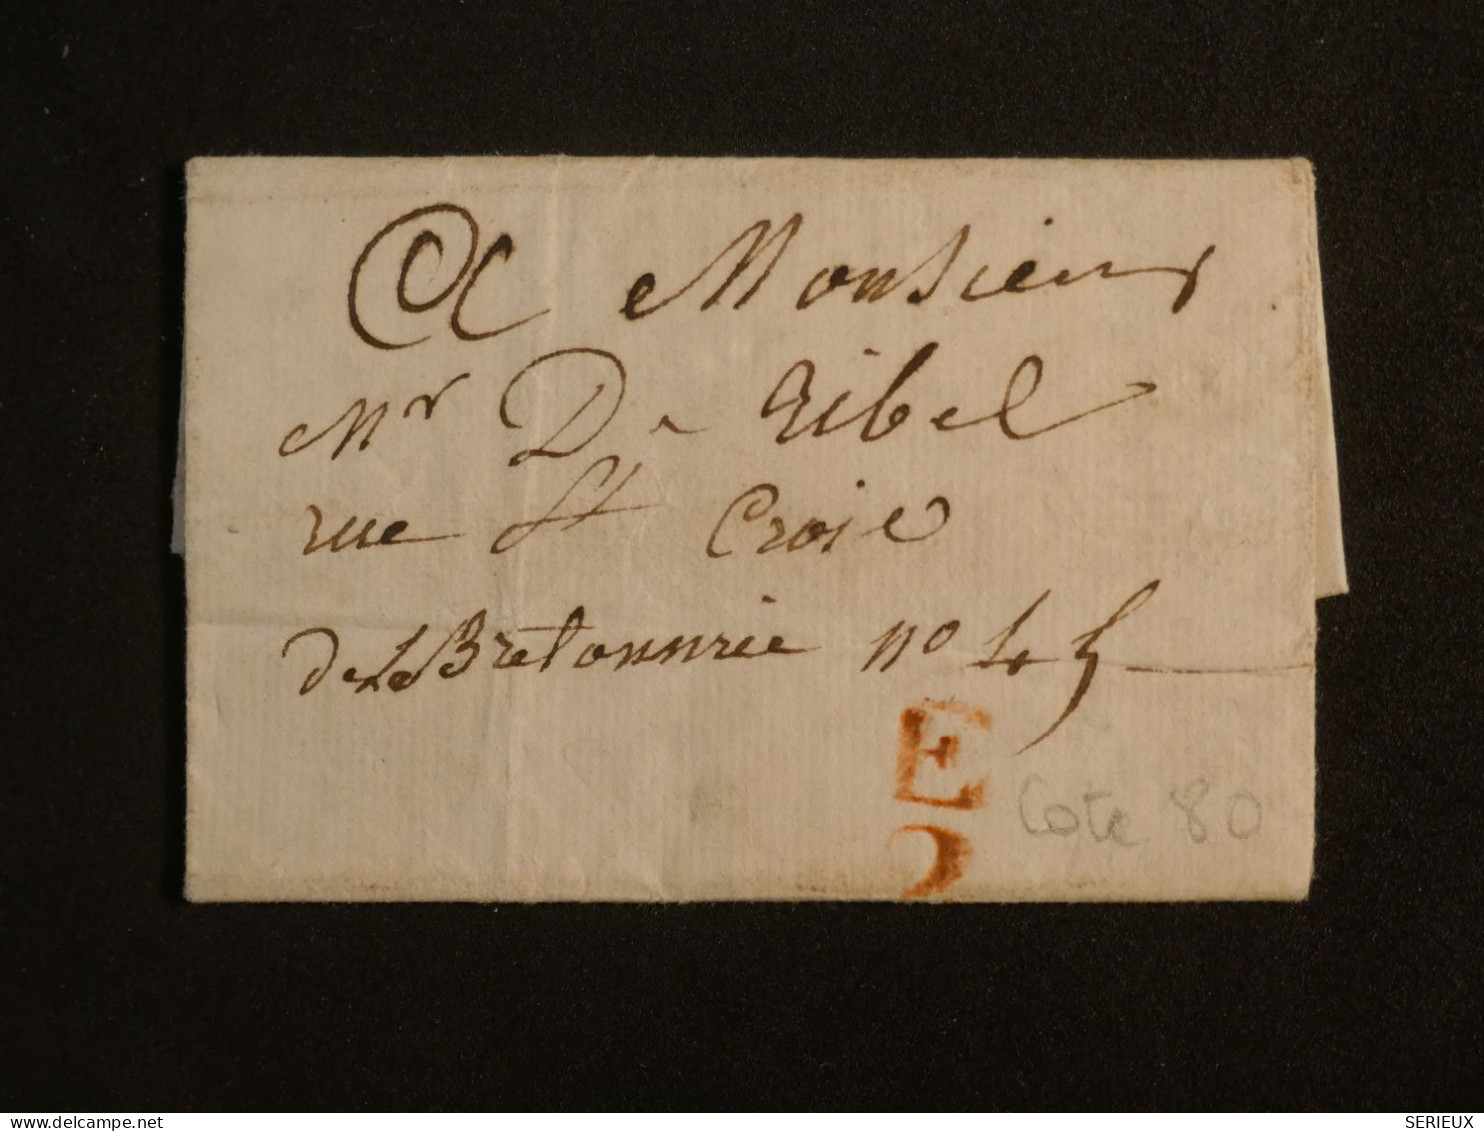 A Monsieur
Mr De Ribel
rue St Croie
de la Bretonnrie no 45
E
Cote 80
delcampe.net
SERIEUX